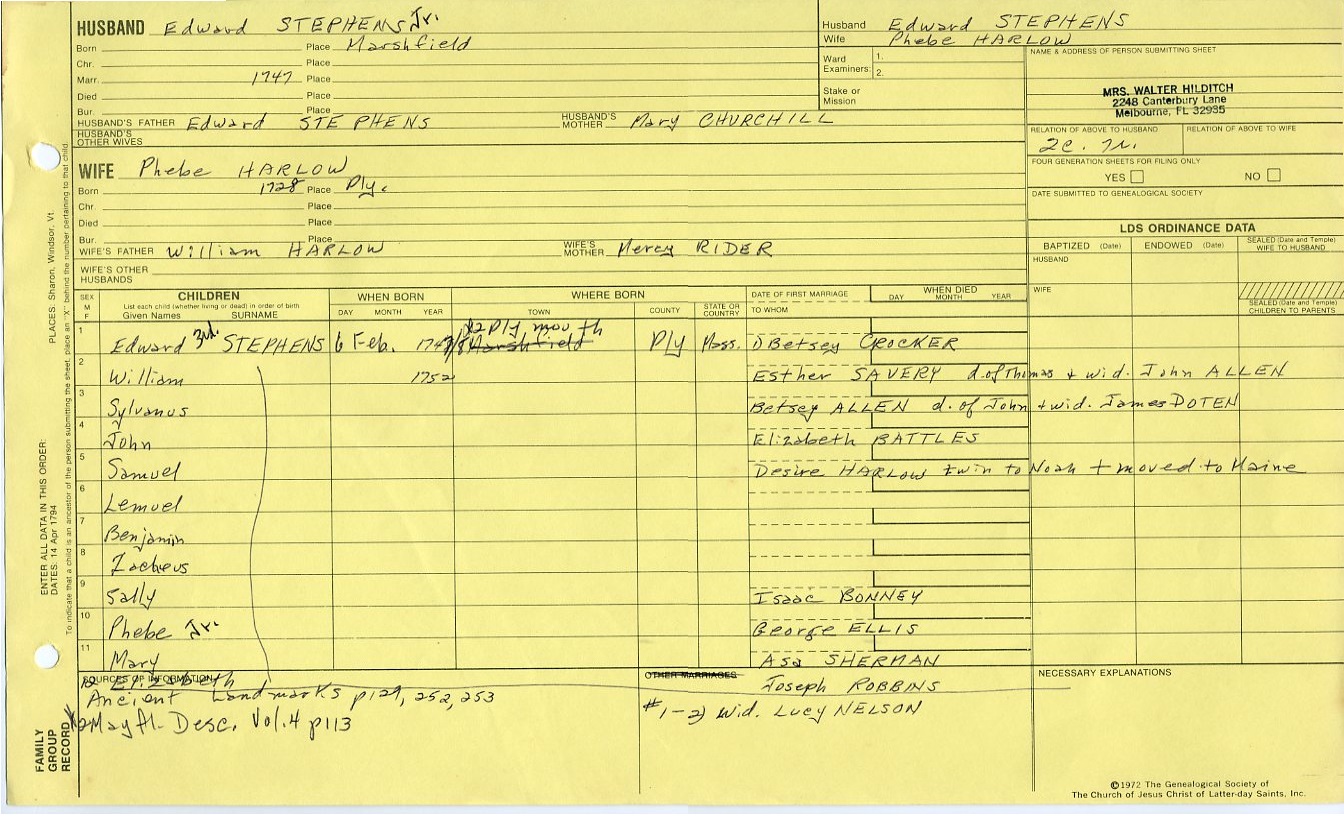 HUSBAND Edward STEPHENS Jr.
Born Place Marshfield
Chr. Place
Marr. 1747 Place
Died Place
Bur. Place
HUSBAND'S FATHER Edward STEPHENS HUSBAND'S MOTHER Mary CHURCHILL
HUSBAND'S OTHER WIVES
WIFE Phebe HARLOW
Born 1728 Place Ply.
Chr. Place
Died Place
Bur. Place
WIFE'S FATHER William HARLOW WIFE'S MOTHER Mercy RIDER
WIFE'S OTHER HUSBANDS
Husband Edward STEPHENS
Wife Phebe HARLOW
Ward Examiners: 1.
2.
Stake or Mission
NAME & ADDRESS OF PERSON SUBMITTING SHEET
MRS. WALTER HILDITCH
2248 Canterbury Lane
Melbourne, FL 32935
RELATION OF ABOVE TO HUSBAND RELATION OF ABOVE TO WIFE
FOUR GENERATION SHEETS FOR FILING ONLY
YES NO
DATE SUBMITTED TO GENEALOGICAL SOCIETY
LDS ORDINANCE DATA
BAPTIZED (Date) ENDOWED (Date) SEALED (Date and Temple) WIFE TO HUSBAND
HUSBAND
WIFE
SEALED (Date and Temple) CHILDREN TO PARENTS
SEX M F
CHILDREN
List each child (whether living or dead) in order of birth
Given Names SURNAME
WHEN BORN
DAY MONTH YEAR
WHERE BORN
TOWN COUNTY STATE OR COUNTRY
DATE OF FIRST MARRIAGE
TO WHOM
WHEN DIED
DAY MONTH YEAR
1 Edward 3rd. STEPHENS 6 Feb. 1747/8 Marshfield x2 Plymouth Ply Mass. 1) Betsey CROCKER
2 William 1752 Esther SAVERY d. of Thomas + wid. John ALLEN
3 Sylvanus Betsey ALLEN d. of John + wid. James DOTEN
4 John Elizabeth BATTLES
5 Samuel Desire HARLOW twin to Noah + moved to Maine
6 Lemuel
7 Benjamin
8 Zacheus
9 Sally Isaac BONNEY
10 Phebe Jr. George ELLIS
11 Mary Asa SHERMAN
12 Elizabeth Joseph ROBBINS
SOURCES OF INFORMATION
Ancient Landmarks p129, 252, 253
x2 Mayfl. Desc. Vol. 4 p113
OTHER MARRIAGES
#1-2) wid. Lucy NELSON
NECESSARY EXPLANATIONS
©1972 The Genealogical Society of
The Church of Jesus Christ of Latter-day Saints, Inc.
FAMILY GROUP RECORD
ENTER ALL DATA IN THIS ORDER:
DATES: 14 Apr 1794 PLACES: Sharon, Windsor, Vt.
To indicate that a child is an ancestor of the person submitting the sheet, place an "X" behind the number pertaining to that child.